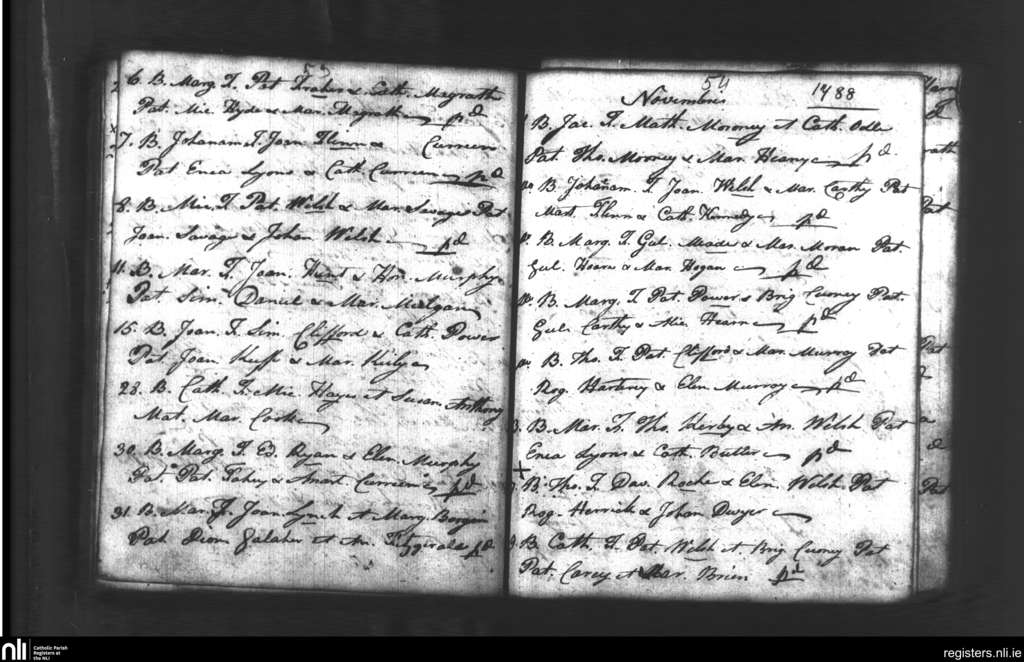 53
6. B. Marg. F. Pat. & Cath. Magrath
Pat. Mic. Hyde & Mar. Magrath pd
7. B. Johanam F. Joan Flinn & Curreen
Pat Enea Lyons & Cath Curreen pd
8. B. Mic. F. Pat. Welsh & Mar. Savage Pat.
Joan. Savage & Johan Welsh pd
11. B. Mar. F. Joan. Hunt & Hon. Murphy
Pat. Sim. Daniel & Mar.
15. B. Joan. F. Sim. Clifford & Cath. Power
Pat Joan & Mar.
28. B. Cath. F. Mic. Hayes et Susan. Anthony
Mat. Mar. Cooke
30. B. Marg. F. Ed. Ryan & Elen Murphy
Pat. Pat. Fahey & Anast. Curreen pd
31. B. Mar. F. Joan Lynch et Mary
Pat Dion Galaher et An. Fitzgerald pd
54
Novembris 1788
B. Jac. F. Math. Moroney et Cath. Odle
Pat. Tho. Mooney & Mar. Heany pd.
B. Johanam. F. Joan. Welsh & Mar. Carthy Pat
Mat. Flinn & Cath. Kennedy pd
B. Marg. F. Gul. Meade & Mar. Moran Pat.
Gul. Hearn & Mar. Hogan pd
B. Marg. F. Pat. Power & Brig Cuoney Pat.
Gul. Carthy & Mic. Hearn pd
B. Tho. F. Pat. Clifford & Mar. Murroy Pat
Rog. & Elen. Murroy pd
B. Mar. F. Tho. Kerby & An. Welsh Pat
Enea Lyons & Cath. Butler pd
B. Tho. F. Dav. Roche & Elen. Welsh Pat
Rog. Herrick & Johan Dwyer
B. Cath. F. Pat. Welsh et. Brig Cuoney Pat
Pat. Carey et Mar. Brien pd
nli Catholic Parish
Registers at
the NLI
registers.nli.ie